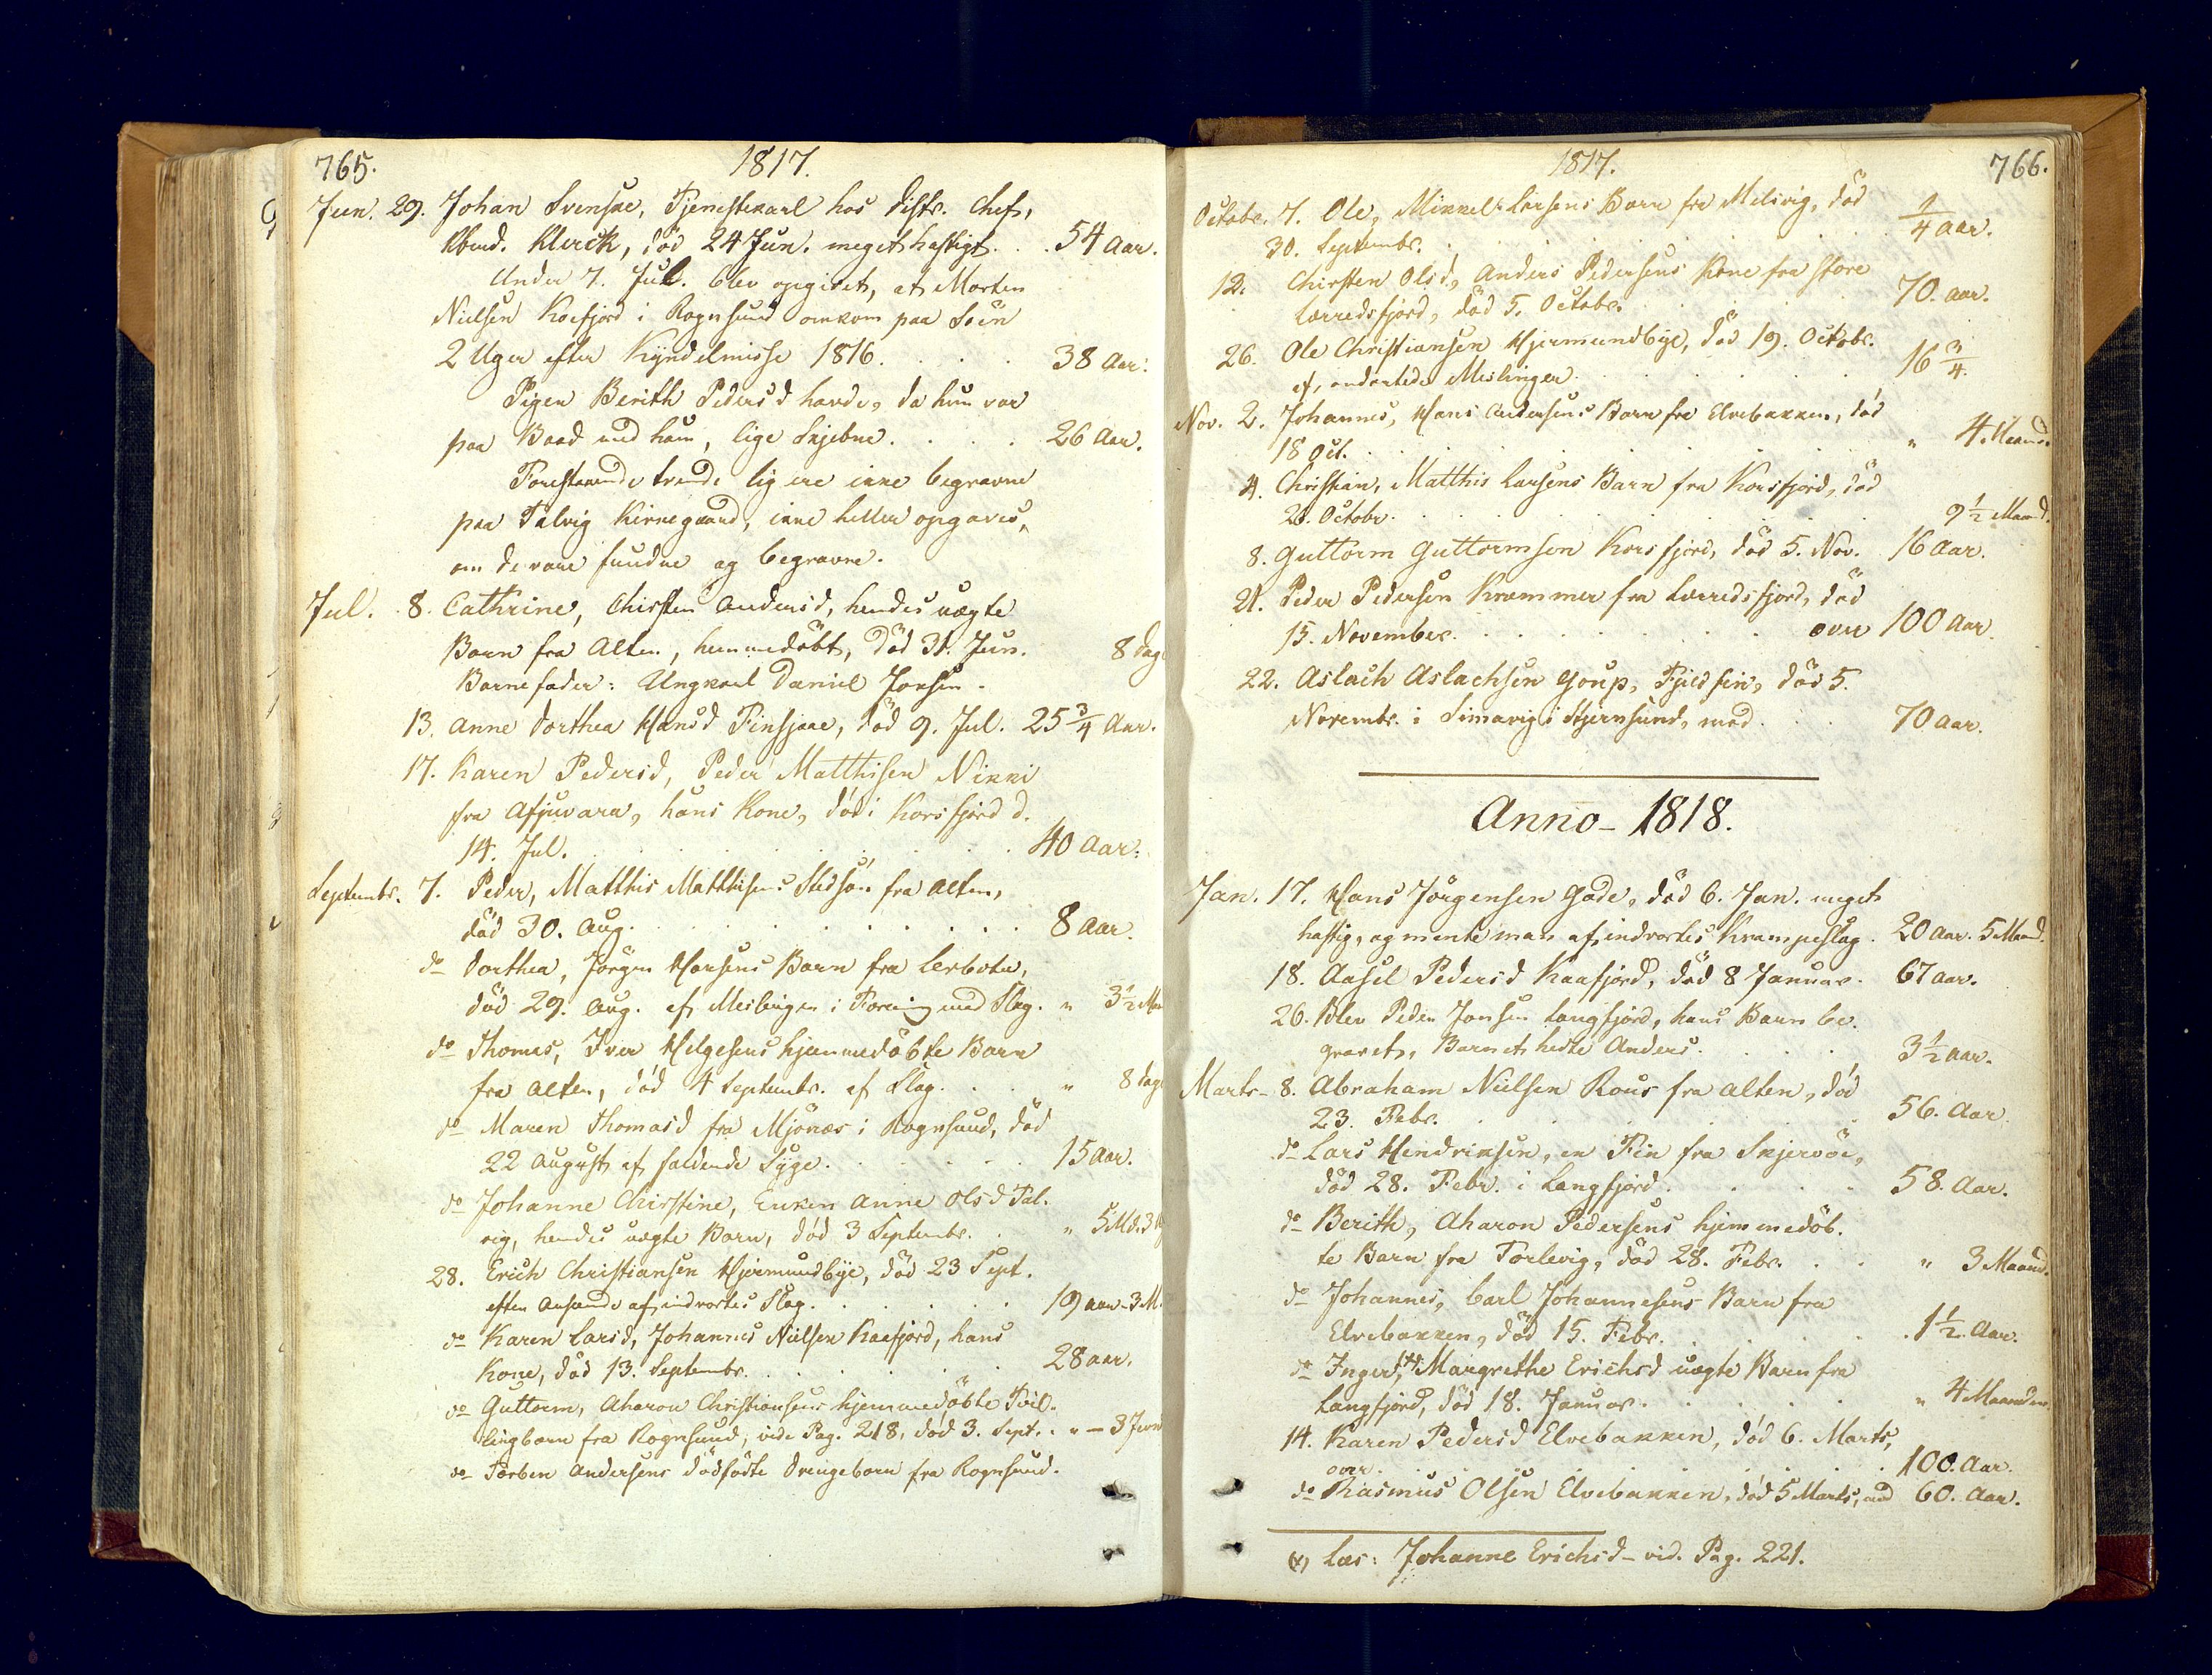 765. 1817.
Jun. 29. Johan Svenske, Tjenestekarl hos Distr. Chef,
Kbmd. Klerck, död 24 Jun. meget hastigt. . . 54 Aar.
Under 7. Jul. blev opgivet, at Morten
Nielsen Koefjord i Rognsund omkom paa Söen
2 Uger efter Kyndelmisse 1816. . . . 38 Aar.
Pigen Berith Pedersd havde, da hun var
paa Baad med ham, lige Skjebne. . . . 26 Aar.
Forestaaende trende lig ere ikke begravne
paa Talvig Kirkegaard, ikke heller opgaves,
om de vare fundne og begravne.
Jul. 8. Cathrine, Chirsten Andersd, hendes uægte
Barn fra Alten, hjemmedöbt, död 31. Jun. 8 Dage
Barnefader: Ungkarl Daniel Jonsen.
13. Anne Dorthea Hansd Finsjaae, död 9. Jul. 25 3/4 Aar.
17. Karen Pedersd, Peder Matthisen Nikki
fra Afjuvara, hans Kone, död i Korsfjord d.
14. Jul. . . . 40 Aar.
Septembr. 7. Peder, Matthis Matthisens Stedsön fra Alten,
död 30. Aug. . . . 8 Aar.
do Dorthea, Jörgen Hansens Barn fra Lerbotn,
död 29. Aug. af Meslinger i Forening med Slag. " 3 1/2 Ma
do Thomas, Iver Helgesens hjemmedöbte Barn
fra Alten, död 4 Septembr. af Slag. . . " 8 Dage
do Maren Thomasd fra Mjönæs i Rognsund, död
22 August af faldende Syge. . . . 15 Aar.
do Johanne Chirstine, Enken Anne Olsd Tal-
vig, hendes uægte Barn, död 3 Septembr. . " 5 Md. 3
28. Erich Christiansen Hjermundbye, död 23 Sept.
efter Ansaaende af indvortes Slag. . . . 19 Aar. 3 M.
do Karen Larsd, Johannes Nielsen Kaafjord, hans
Kone, död 13. Septembr. . . . 28 Aar.
do Guttorm, Aharon Christiansens hjemmedöbte Tvil-
lingbarn fra Rognsund, vide Pag. 218, död 3. Sept. . " — 3
do Torben Andersens dödfödte Drengebarn fra Rognsund.
1817. 766.
Octobr. 7. Ole, Mikkel Larsens Barn fra Milsvig, död
30. Septembr. . . . 1/4 Aar.
12. Chirsten Olsd, Anders Pedersens Kone fra Store
Lerredsfjord, död 5. Octobr. . . . 70. Aar.
26. Ole Christiansen Hjermundbye, död 19. Octobr.
af ondartede Meslinger. . . . 16 3/4.
Nov. 2. Johannes, Hans Andersens Barn fra Elvebakken, död
18 Oct. . . . " 4 Maaned.
4. Christian, Matthis Larsens Barn fra Korsfjord, död
26. Octobr. . . . 9 1/2 Maaned.
8. Guttorm Guttormsen Korsfjord, död 5. Nov. 16 Aar.
21. Peder Pedersen Krammer fra Lerredsfjord, död
15. November. . . . over 100 Aar.
22. Aslach Aslachsen Goup, Fjeldfin, död 5.
Novembr. i Simavig i Stjernsund, med . . . 70 Aar.
Anno - 1818.
Jan. 17. Hans Jörgensen Gade, död 6. Jan. meget
hastig, og mente man af indvortes Krampeslag. 20 Aar. 5 Maaned.
18. Aasel Pedersd Kaafjord, död 8 Januar. 67 Aar.
26. Blev Peder Jonsen Langfjord, hans Barn be-
gravet, Barnet hedte Anders. . . . 3 1/2 Aar.
Marts - 8. Abraham Nielsen Rous fra Alten, död
23. Febr. . . . 56. Aar.
do Lars Hendriksen, en Fin fra Skjervöe,
död 28. Febr. i Langfjord. . . . 58. Aar.
do Berith, Aharon Pedersens hjemmedöb-
te Barn fra Torlevig, död 28. Febr. . . " 3 Maaned.
do Johannes, Carl Johannesens Barn fra
Elvebakken, död 15. Febr. . . . 1 1/2. Aar.
do Inger (x) Margrethe Erichsd uægte Barn fra
Langfjord, död 18. Januar. . . . " 4 Maaneder.
14. Karen Pedersd Elvebakken, död 6. Marts,
over . . . 100. Aar.
do Rasmus Olsen Elvebakken, död 5 Marts, med 60. Aar.
(x) Læs: Johanne Erichsd - vid. Pag. 221.